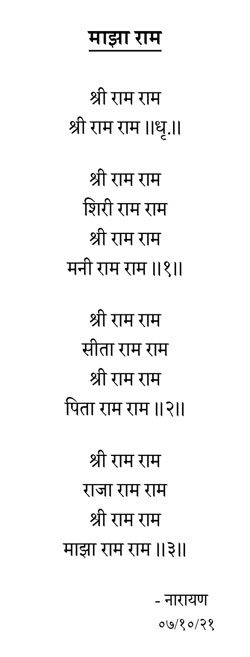 माझा राम
श्री राम राम
श्री राम राम ॥धृ.॥
श्री राम राम
शिरी राम राम
श्री राम राम
मनी राम राम ॥१॥
श्री राम राम
सीता राम राम
श्री राम राम
पिता राम राम ॥२॥
श्री राम राम
राजा राम राम
श्री राम राम
माझा राम राम ॥३॥
- नारायण
०७/१०/२१